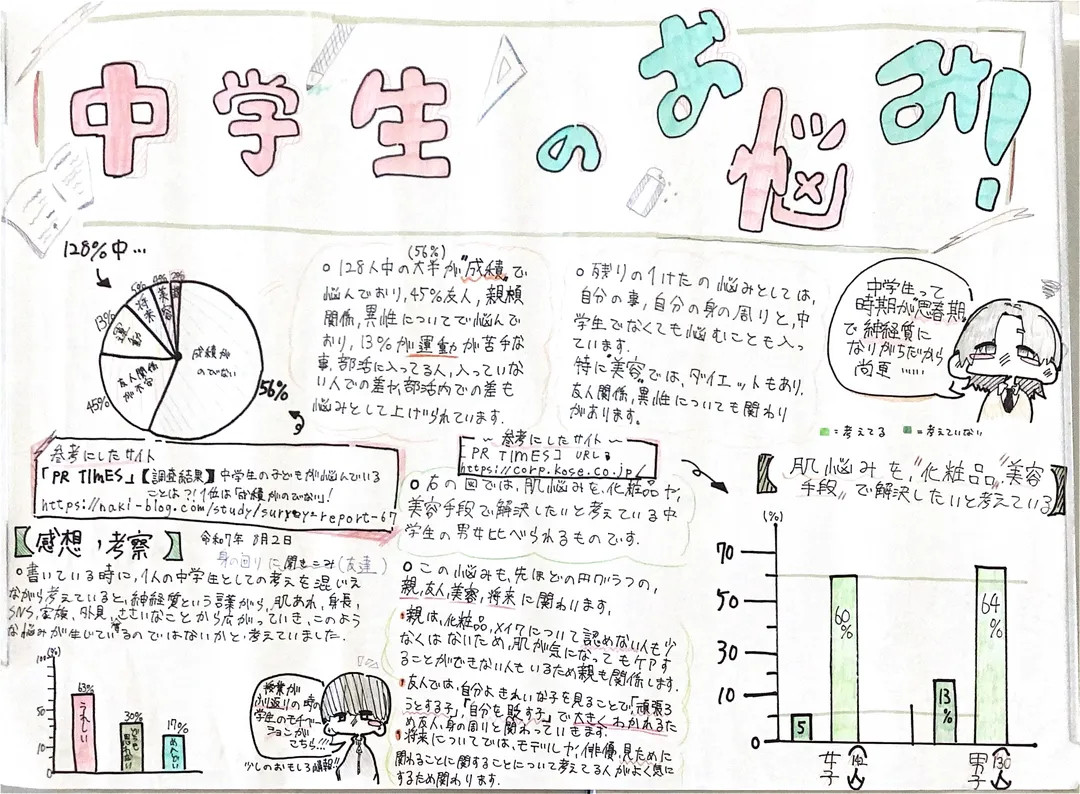 中学生のお悩み!
128%中…
成績がのびない
友人関係が不安
運動
将来
美容
親
56%
45%
13%
5%
4%
2%
(56%)
○128人中の大半が"成績"で
悩んでおり,45%友人,親頼
関係,異性についてで悩んで
おり,13%が運動が苦手な
事,部活に入ってる人,入っていな
い人での差や,部活内での差も
悩みとして上げられています.
○残りの1けたの悩みとしては,
自分の事,自分の身の周りと,中
学生でなくても悩むことも入っ
ています.
特に"美容"では,ダイエットもあり.
友人関係,異性についても関わり
があります。
中学生って
時期が思春期
で神経質に
なりがちだから
尚更……
参考にしたサイト
「PR TImES」【調査結果】中学生の子どもが悩んでいる
ことは?!1位は「成績がのびない!
https://naki-blog.com/study/survey-report-67
~参考にしたサイト~
「PR TImES」URL↓
https://corp.kose.co.jp/
【感想,考察】
令和7年 8月2日
身の回りに聞きこみ(友達)
○書いている時に,1人の中学生としての考えを混じえ
ながら考えていると,神経質という言葉から,肌あれ,身長,
SNS,家族,外見,ささいなことから広がっていき,このよう
な悩みが生じているのではないかと考えていました.
(%)
100
50
10
0
63%
うれしい
30%
17%
めんどい
授業が
ふり返りの時の
学生のモチベー
ションが
こちら!!!
少しのおもしろ情報!!
○右の図では,肌悩みを,化粧品や,
美容手段で解決したいと考えている中
学生の男女比べられるものです.
○この悩みも,先ほどの円グラフの,
親,友人,美容,将来に関わります,
・親は,化粧品,メイクについて認めない人も少
なくはないため,肌が気になってもケアす
ることができない人もいるため親も関係します.
・友人では,自分よきれいな子を見ることで「頑張ろ
うとする子」「自分を貶す子」で大きくわかれるた
め友人,身の周りと関わっていきます.
・将来についてでは,モデルしや,俳優,見ために
関わることに関することについて考えてる人がよく気に
するため関わります.
=考えてる
=考えていない
【肌悩みを,"化粧品""美容
手段"で解決したいと考えている】
(%)
70
50
30
10
0
5
60%
13%
64%
女子
男子
130人